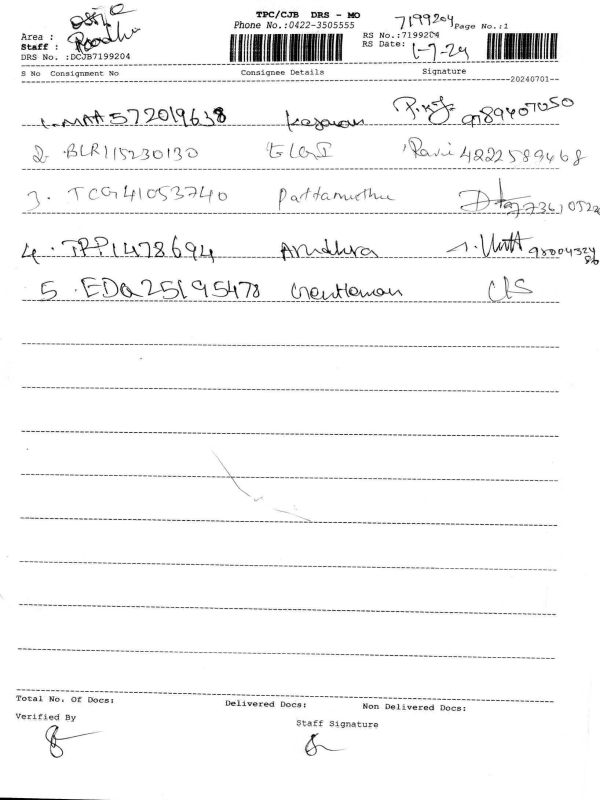 TPC/CJB DRS - MO
Phone No.:0422-3505555
7199204
Page No.:1
Area :
Staff :
DRS No. :DCJB7199204
RS No.:7199204
RS Date: 1-7-24
S No Consignment No Consignee Details Signature
20240701
1. MAA572019638
2. BLR115230130 Ravi 4222589468
3. TCG41053740 Pattamuthu
4. TPP1478694 Arudhra
5. EDQ25195478 Gentleman
Total No. Of Docs: Delivered Docs: Non Delivered Docs:
Verified By Staff Signature